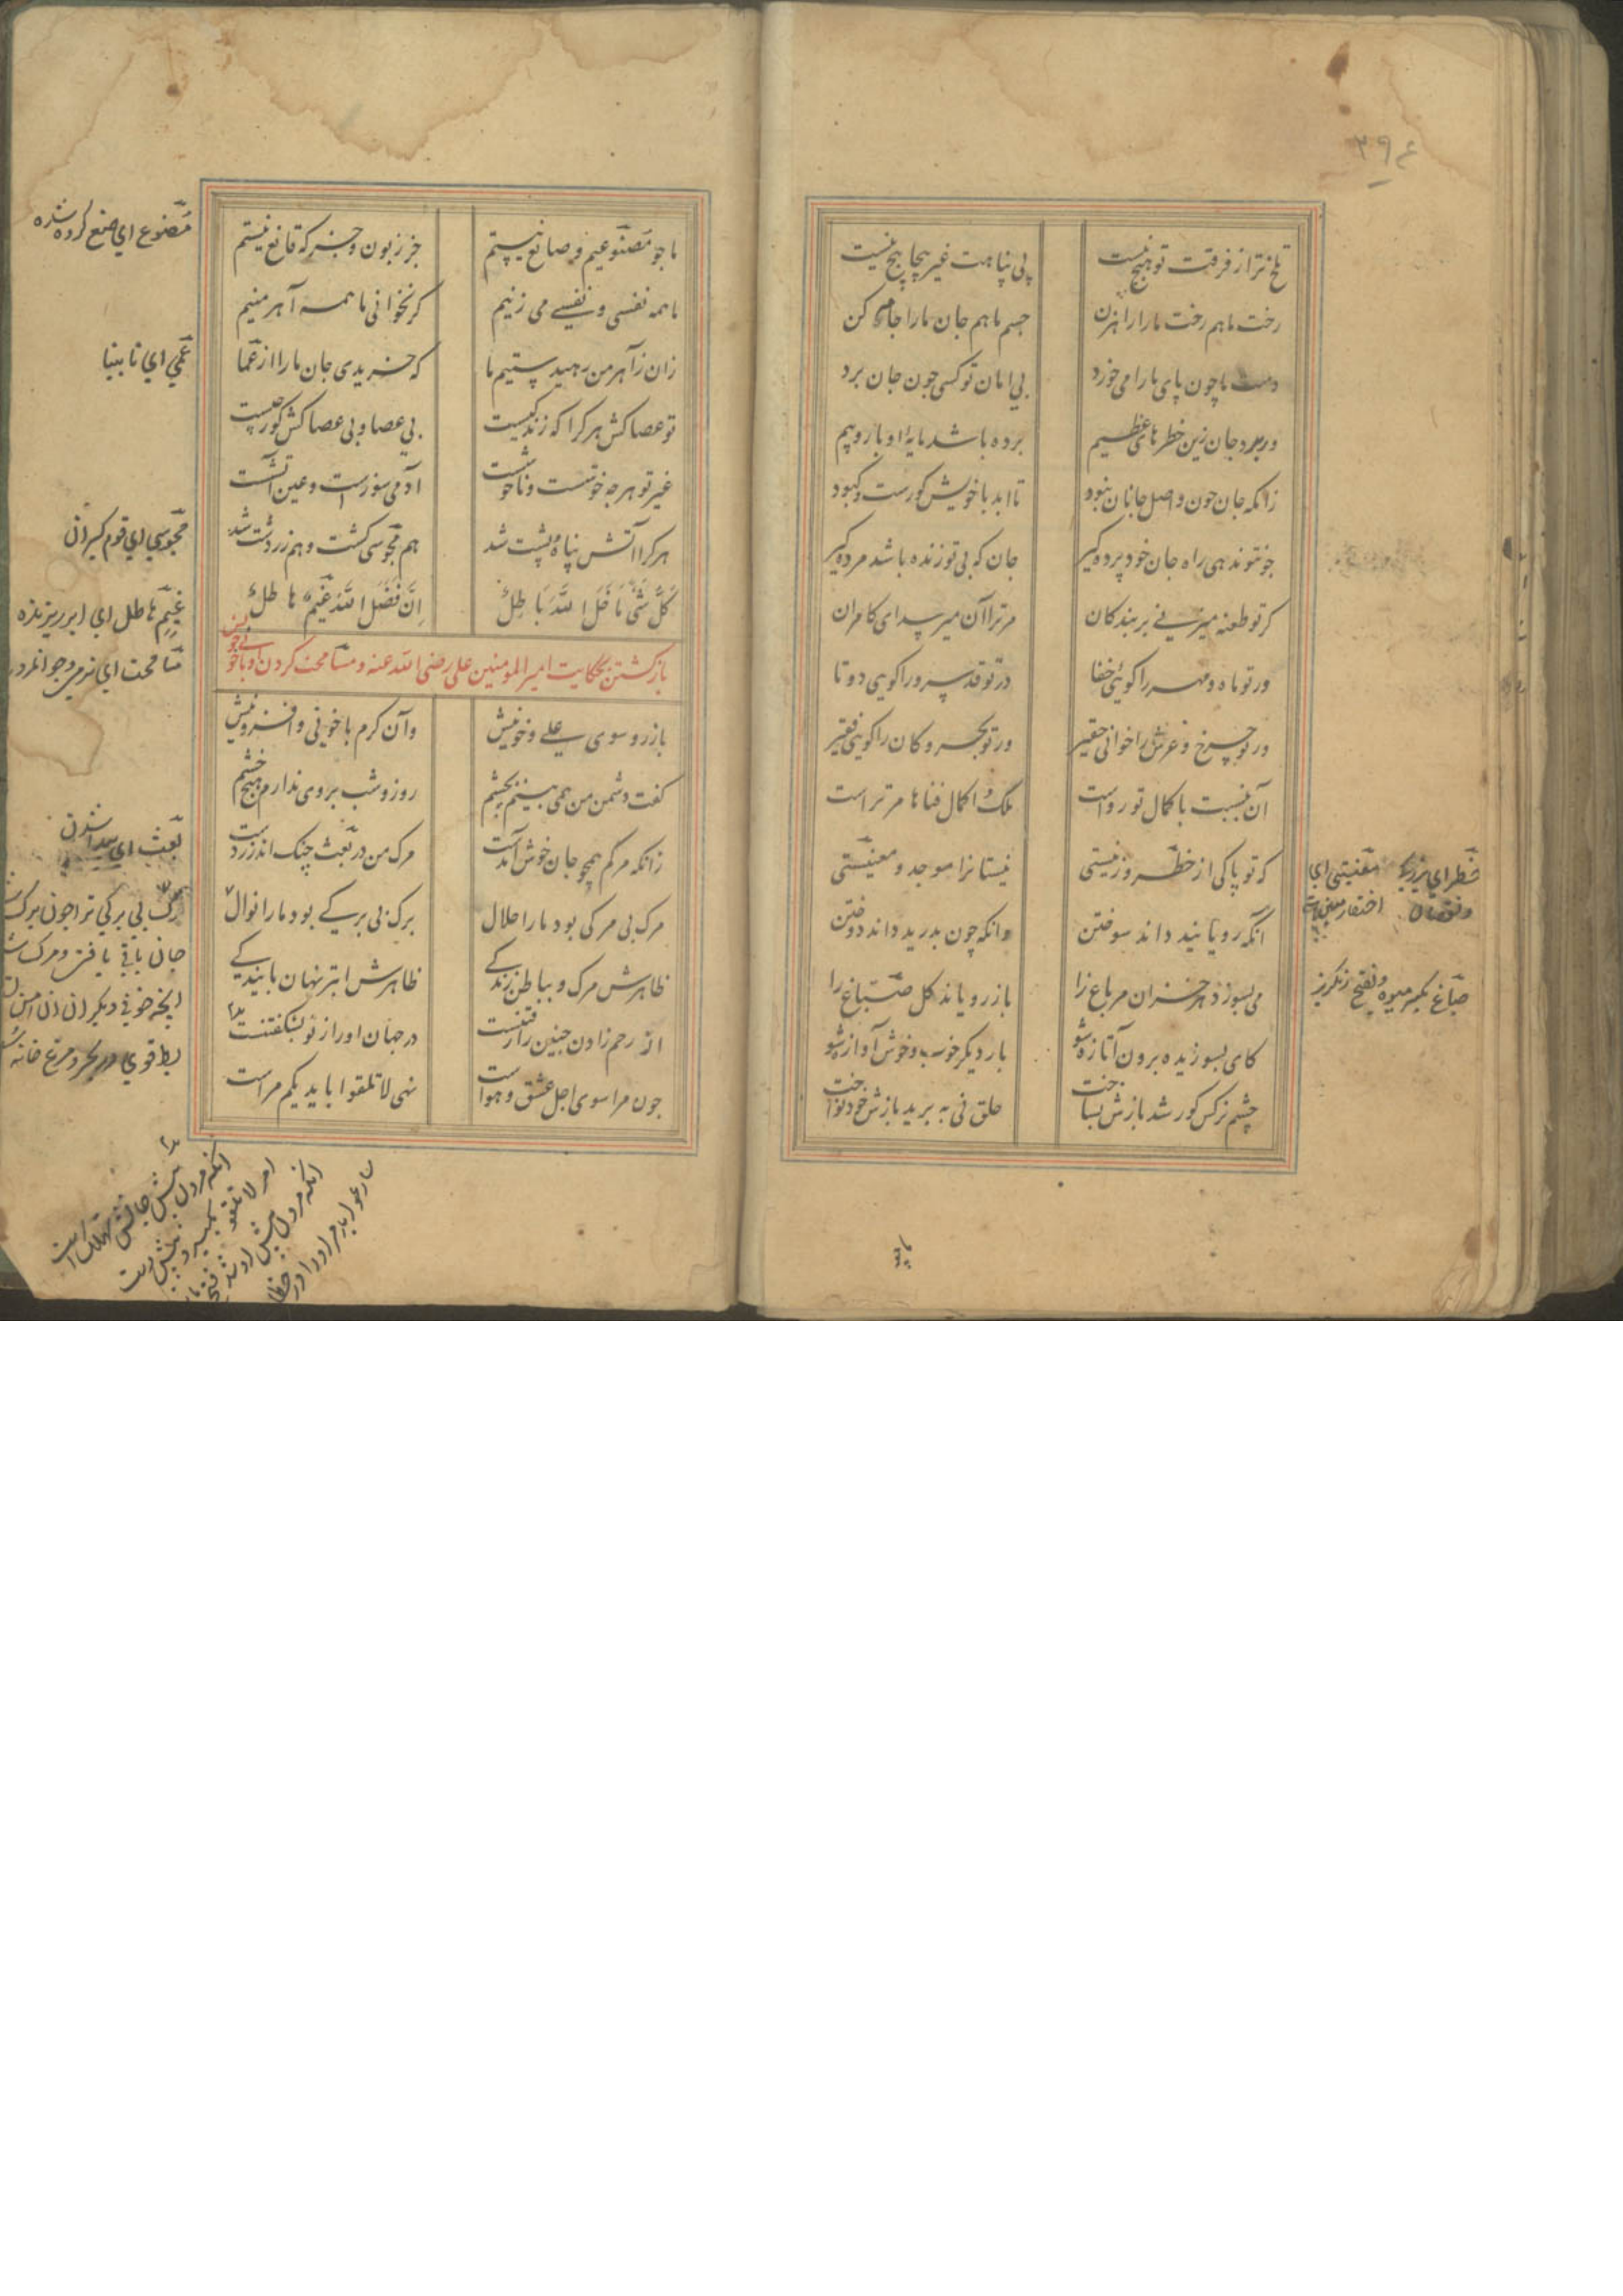 ۳۹۴
تلخ تر از فرقت تو هیچ نیست
بی پناهت غیر پیچاپیچ نیست
رخت ما هم رخت ما را راهزن
جسم ما هم جان ما را جامه کن
دست ما چون پای ما را می خورد
بی امان تو کسی جون جان برد
ور برد جان زین خطرهای عظیم
برده باشد مایهٔ ادبار و بیم
زانکه جان جون واصل جانان نبود
تا ابد با خویش کورست و کبود
جون تو ندهی راه جان خود برده کیر
جان که بی تو زنده باشد مرده کیر
کر تو طعنه میزنی بر بندکان
مر ترا آن میرسد ای کامران
ور تو ماه و مهر را کوئی خفا
ور تو قد سرو را کویی دوتا
ور تو چرخ و عرش را خوانی حقیر
ور تو بحر و کان را کویی فقیر
آن بنسبت با کمال تو رواست
ملک و اکمال فناها مر تراست
که تو پاکی از خطر وز نیستی
نیستانرا موجد و مغنیستی
آنکه رویانید داند سوختن
وانکه چون بدرید داند دوختن
می بسوزد هر خزان مر باغ را
باز رویاند کل صباغ را
کای بسوزیده برون آ تازه شو
بار دیکر خوب و خوش آوازه شو
چشم نرکس کور شد بازش بساخت
حلق نی ببرید بازش خود نواخت
خطر ای بزرگی
و نقصان
مغنیستی ای
صباغ بکسر میوه و بفتح رنکریز
ما جو مصنوعیم و صانع نیستیم
جز زبون و جز که قانع نیستیم
ما همه نفسی و نفسی می زنیم
کر نخوانی ما همه آهرمنیم
زان ز آهرمن رهیدستیم ما
که خریدی جان ما را از عما
تو عصاکش هر کرا که زندکیست
بی عصا و بی عصاکش کور چیست
غیر تو هر جه خوشست و ناخوشست
آدمی سوزست و عین آتشست
هر کرا آتش پناه و پشت شد
هم مجوسی کشت و هم زردشت شد
کل شئ ما خلا الله باطل
ان فضل الله غیم هاطل
بازکشتن بحکایت امیر المومنین علی رضی الله عنه و مسامحت کردن او با خونی خویش
باز رو سوی علی و خونیش
وآن کرم با خونی و افزونیش
کفت دشمن من همی بینم بچشم
روز و شب بر وی ندارم هیچ خشم
زانکه مرکم همچو جان خوش آمدست
مرک من در بعث چنک اندر زدست
مرک بی مرکی بود ما را حلال
برک بی برکی بود ما را نوال
ظاهرش مرک و بباطن زندکی
ظاهرش ابتر نهان پایندکی
از رحم زادن جنین را رفتنست
در جهان او را ز نو بشکفتنست
جون مرا سوی اجل عشق و هواست
نهی لا تلقوا بایدیکم مراست
مصنوع ای صنع کرده شده
عمی ای نابینا
مجوسی ای قوم کبران
غیم هاطل ای ابر ریزنده
مسامحت ای نرمی و جوانمردی
بعث ای
برک بی برکی ترا جون برک شد
جان باقی یافتی و مرک شد
انچه خوف دیکران آن امن تست
بط قوی در بحر و مرغ خانه سست
آنکه مردن پیش جانش تهلکه است
امر لا تلقوا بکیرد او بدست
آنکه مردن پیش او شد فتح باب
سارعوا آید مر او را در خطاب